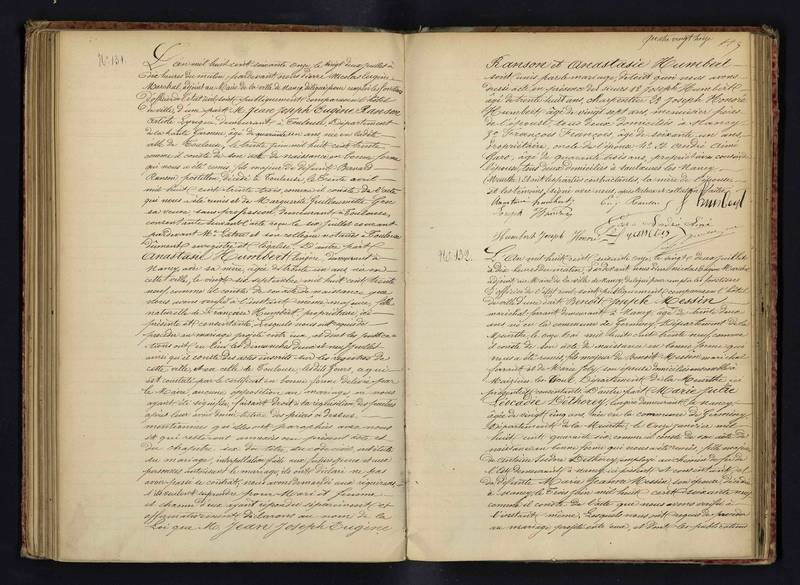 quatre vingt treize
N° 131.
L'an mil huit cent soixante onze, le vingt deux juillet à
heures du matin, pardevant nous Pierre Nicolas
Maréchal, adjoint au Maire de la ville de Nancy, délégué pour remplir les fonctions
d'officier de l'état civil sont publiquement comparus à l'hôtel
de ville, d'une part M. Jean Joseph Eugène Ranson
Artiste lyrique demeurant à Toulouse, Département
de la haute Garonne, âgé de quarante un ans, né en cette
ville de Toulouse, le trente juin mil huit cent trente
comme il conste de son acte de naissance en bonne forme
qui nous a été remis, fils majeur de défunt Bernard
Ranson postillon décédé à Toulouse, le trente avril
mil huit cent trente trois, comme il conste de l'acte
qui nous a été remis et de Marguerite
sa veuve, sans profession, demeurant à Toulouse,
consentante suivant acte reçu le six juillet courant
pardevant Me et son collègue notaires à Toulouse
dûment enregistré et légalisé. D'autre part
Anastasie Humbert lingère, demeurant à
Nancy, avec sa mère, âgée de trente un ans, née en
cette ville, le vingt six septembre mil huit cent trente
neuf, comme il conste de son acte de naissance que
nous avons vérifié à l'instant même, majeure, fille
naturelle de Françoise Humbert, propriétaire, ici
présente et consentante. Lesquels nous ont requis de
procéder au mariage projeté entre eux, et dont les publica-
tions ont eu lieu les dimanches deux et neuf juillet
ainsi qu'il conste des actes inscrits sur les registres de
cette ville, et en celle de Toulouse, lesdits jours, ce qui
est constaté par le certificat en bonne forme délivré par
le Maire, aucune opposition au mariage ne nous
ayant été signifiée, faisant droit à la réquisition des parties
après leur avoir donné lecture des pièces ci dessus
mentionnées qu'elles ont paraphées avec nous
et qui resteront annexées au présent acte et
du chapitre six du titre du code civil intitulé
du mariage, interpellation faite aux futurs époux et aux
personnes autorisant le mariage, ils ont déclaré ne pas
avoir passé de contrat, nous avons demandé aux requérans
s'ils veulent se prendre pour mari et femme
et chacun d'eux ayant répondu séparément et
affirmativement déclarons au nom de la
Loi que M. Jean Joseph Eugène
Ranson et Anastasie Humbert
sont unis par le mariage, de tout quoi nous avons
dressé acte en présence des sieurs 1° Joseph Humbert
âgé de trente huit ans, charpentier 2° Joseph Honoré
Humbert âgé de vingt sept ans, menuisier frères
de l'épouse, tous deux domiciliés à Nancy
3° François François, âgé de soixante un ans,
propriétaire, oncle de l'épouse 4° et André Aimé
âgé de quarante trois ans, propriétaire cousin de
l'épouse, tous deux domiciliés à Saulxures les Nancy
(Meurthe), et ont les parties contractantes, la mère de l'épouse
et les témoins, signé avec nous, après lecture et collation faites
Anastasie humbert Eug Ranson f humbert
Joseph Humbert André Aimé
Humbert Joseph Honoré François
N° 132.
L'an mil huit cent soixante onze, le vingt deux juillet
à dix heures du matin, Pardevant nous Pierre Nicolas Maréchal
adjoint au Maire de la ville de Nancy, délégué pour remplir les fonctions
d'officier de l'état civil, sont publiquement comparus à l'hôtel
de ville, d'une part Benoît Joseph Messin
maréchal ferrant demeurant à Nancy, âgé de trente deux
ans né en la commune de Gémonville, Département de la
Meurthe, le mai mil huit cent trente neuf, comme
il conste de son acte de naissance en bonne forme qui
nous a été remis, fils majeur de Benoît Messin maréchal
ferrant et de Marie Joly son épouse domiciliés ensemble à
Département de la Meurthe ici
présents et consentants. D'autre part Marie Julie
Léocadie Béthorey, lingère demeurant à Nancy,
âgée de vingt cinq ans, née en la commune de
Département de la Meurthe, le onze janvier mil
huit cent quarante six, comme il conste de son acte de
naissance en bonne forme qui nous a été remis, fille majeure
de Béthorey, employé au chemin de fer de
l'Est, demeurant à Nancy, ici présent et consentant et
de défunte Marie Jeanne Messin, son épouse, décédée
à Nancy, le trois juin mil huit cent soixante neuf
comme il conste de l'acte que nous avons vérifié à
l'instant même. Lesquels nous ont requis de procéder
au mariage projeté entre eux, et dont les publications